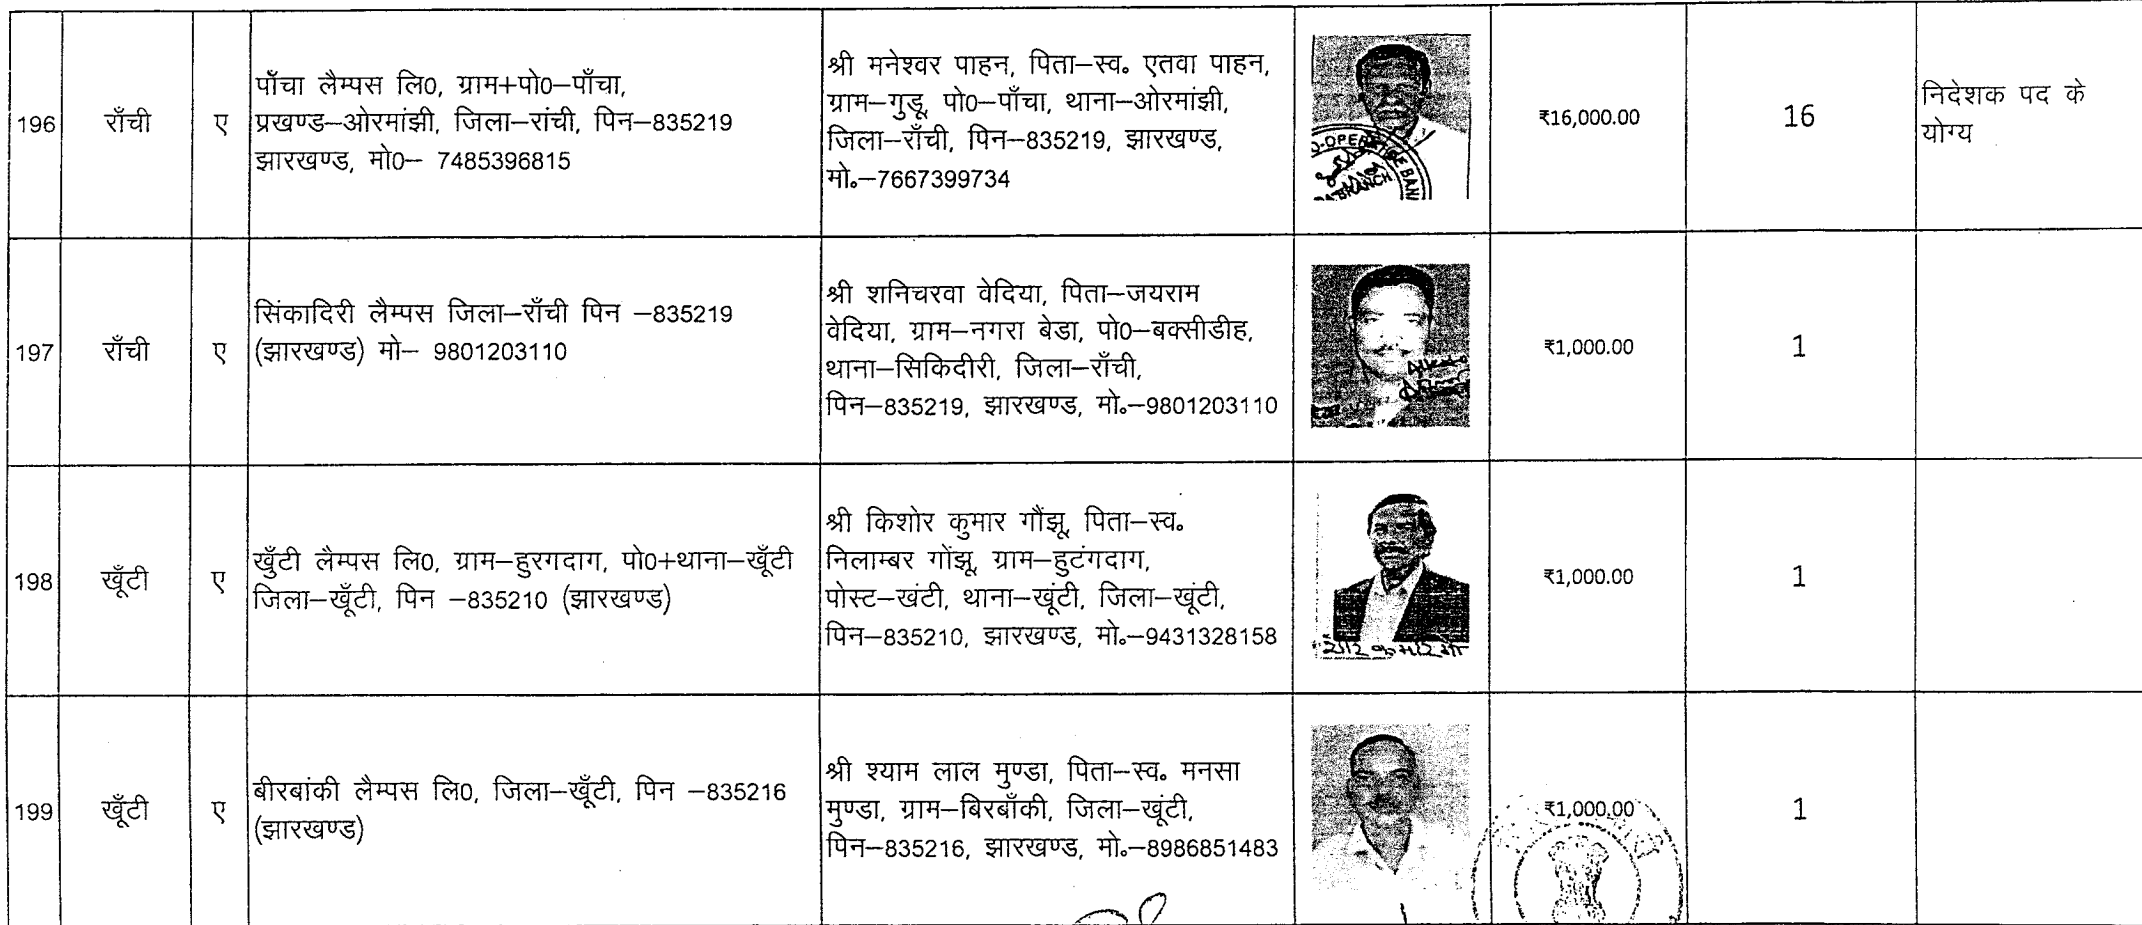 196
राँची
ए
पाँचा लैम्पस लि0, ग्राम+पो0–पाँचा,
प्रखण्ड–ओरमांझी, जिला–रांची, पिन–835219
झारखण्ड, मो0– 7485396815
श्री मनेश्वर पाहन, पिता–स्व० एतवा पाहन,
ग्राम–गुडू, पो0–पाँचा, थाना–ओरमांझी,
जिला–राँची, पिन–835219, झारखण्ड,
मो०–7667399734
BRANCH
₹16,000.00
16
निदेशक पद के
योग्य
197
राँची
ए
सिंकादिरी लैम्पस जिला–राँची पिन –835219
(झारखण्ड) मो– 9801203110
श्री शनिचरवा वेदिया, पिता–जयराम
वेदिया, ग्राम–नगरा बेडा, पो0–बक्सीडीह,
थाना–सिकिदीरी, जिला–राँची,
पिन–835219, झारखण्ड, मो०–9801203110
₹1,000.00
1
198
खूँटी
ए
खुँटी लैम्पस लि0, ग्राम–हुरगदाग, पो0+थाना–खूँटी
जिला–खूँटी, पिन –835210 (झारखण्ड)
श्री किशोर कुमार गौंझू, पिता–स्व०
निलाम्बर गोंझू, ग्राम–हुटंगदाग,
पोस्ट–खंटी, थाना–खूंटी, जिला–खूंटी,
पिन–835210, झारखण्ड, मो०–9431328158
₹1,000.00
1
199
खूँटी
ए
बीरबांकी लैम्पस लि0, जिला–खूँटी, पिन –835216
(झारखण्ड)
श्री श्याम लाल मुण्डा, पिता–स्व० मनसा
मुण्डा, ग्राम–बिरबाँकी, जिला–खूंटी,
पिन–835216, झारखण्ड, मो०–8986851483
₹1,000.00
1